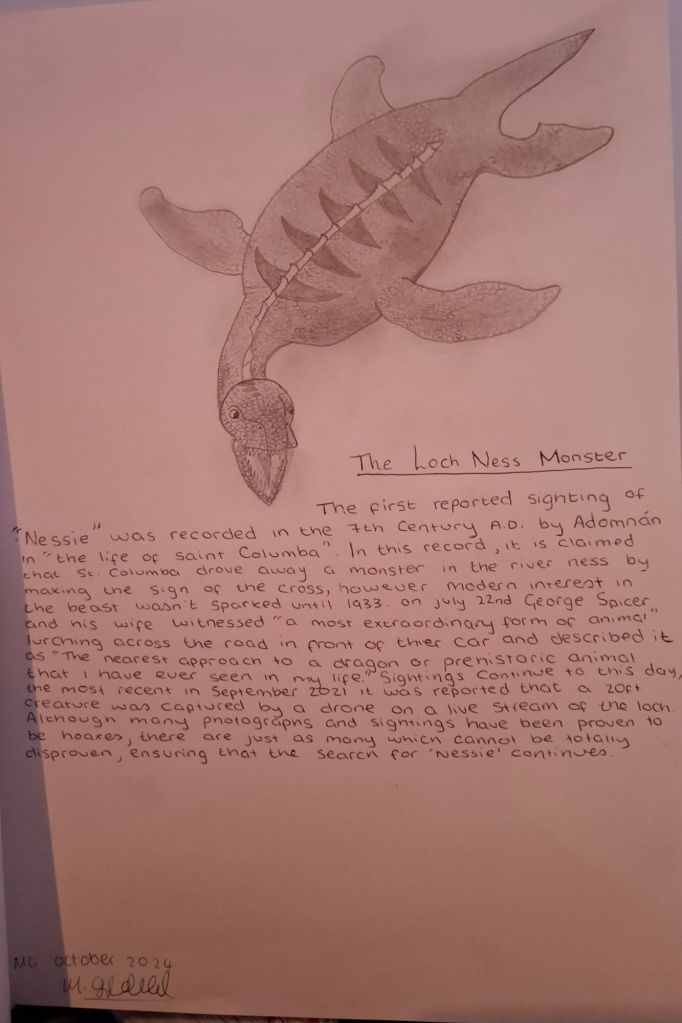 The Loch Ness Monster
The first reported sighting of
"Nessie" was recorded in the 7th Century A.D. by Adomnán
in "the life of saint Columba". In this record, it is claimed
that St. Columba drove away a monster in the river ness by
making the sign of the cross, however modern interest in
the beast wasn't sparked until 1933. on july 22nd George Spicer
and his wife witnessed "a most extraordinary form of animal"
lurching across the road in front of thier car and described it
as "The nearest approach to a dragon or prehistoric animal
that I have ever seen in my life." Sightings continue to this day,
the most recent in September 2021 it was reported that a 20ft
creature was captured by a drone on a live stream of the loch.
Although many photographs and sightings have been proven to
be hoaxes, there are just as many which cannot be totally
disproven, ensuring that the search for 'Nessie' continues.
MG october 2024
M.